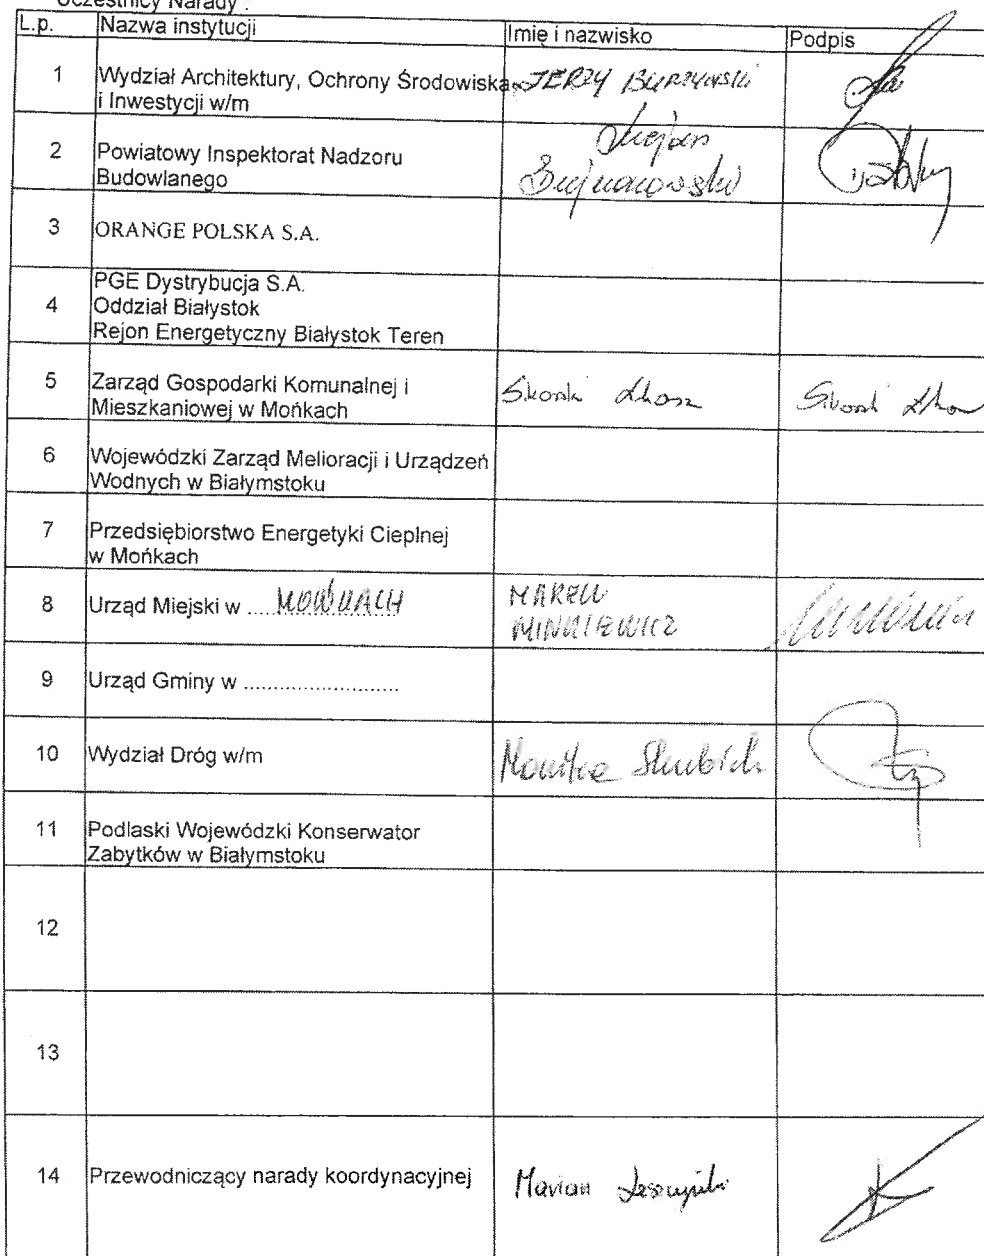 Uczestnicy Narady :
L.p. Nazwa instytucji Imię i nazwisko Podpis
1 Wydział Architektury, Ochrony Środowiska i Inwestycji w/m JERZY
2 Powiatowy Inspektorat Nadzoru
Budowlanego
3 ORANGE POLSKA S.A.
PGE Dystrybucja S.A.
4 Oddział Białystok
Rejon Energetyczny Białystok Teren
5 Zarząd Gospodarki Komunalnej i
Mieszkaniowej w Mońkach
6 Wojewódzki Zarząd Melioracji i Urządzeń
Wodnych w Białymstoku
7 Przedsiębiorstwo Energetyki Cieplnej
w Mońkach
8 Urząd Miejski w .... MOŃKACH MAREK
MINKIEWICZ
9 Urząd Gminy w ..........................
10 Wydział Dróg w/m Monika
11 Podlaski Wojewódzki Konserwator
Zabytków w Białymstoku
12
13
14 Przewodniczący narady koordynacyjnej Marian